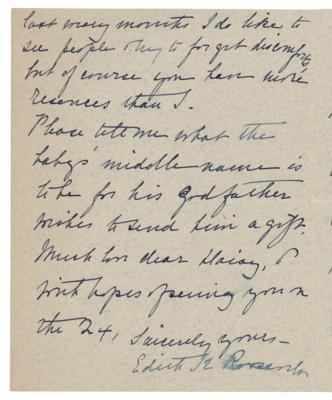 last many months I do like to
see people & try to forget discomforts
but of course you have more
resources than I.
Please tell me what the
babys' middle name is
to be for his godfather
wishes to send him a gift.
Much love dear Daisy, &
with hopes of seeing you on
the 24,
Sincerely yours—
Edith K Roosevelt